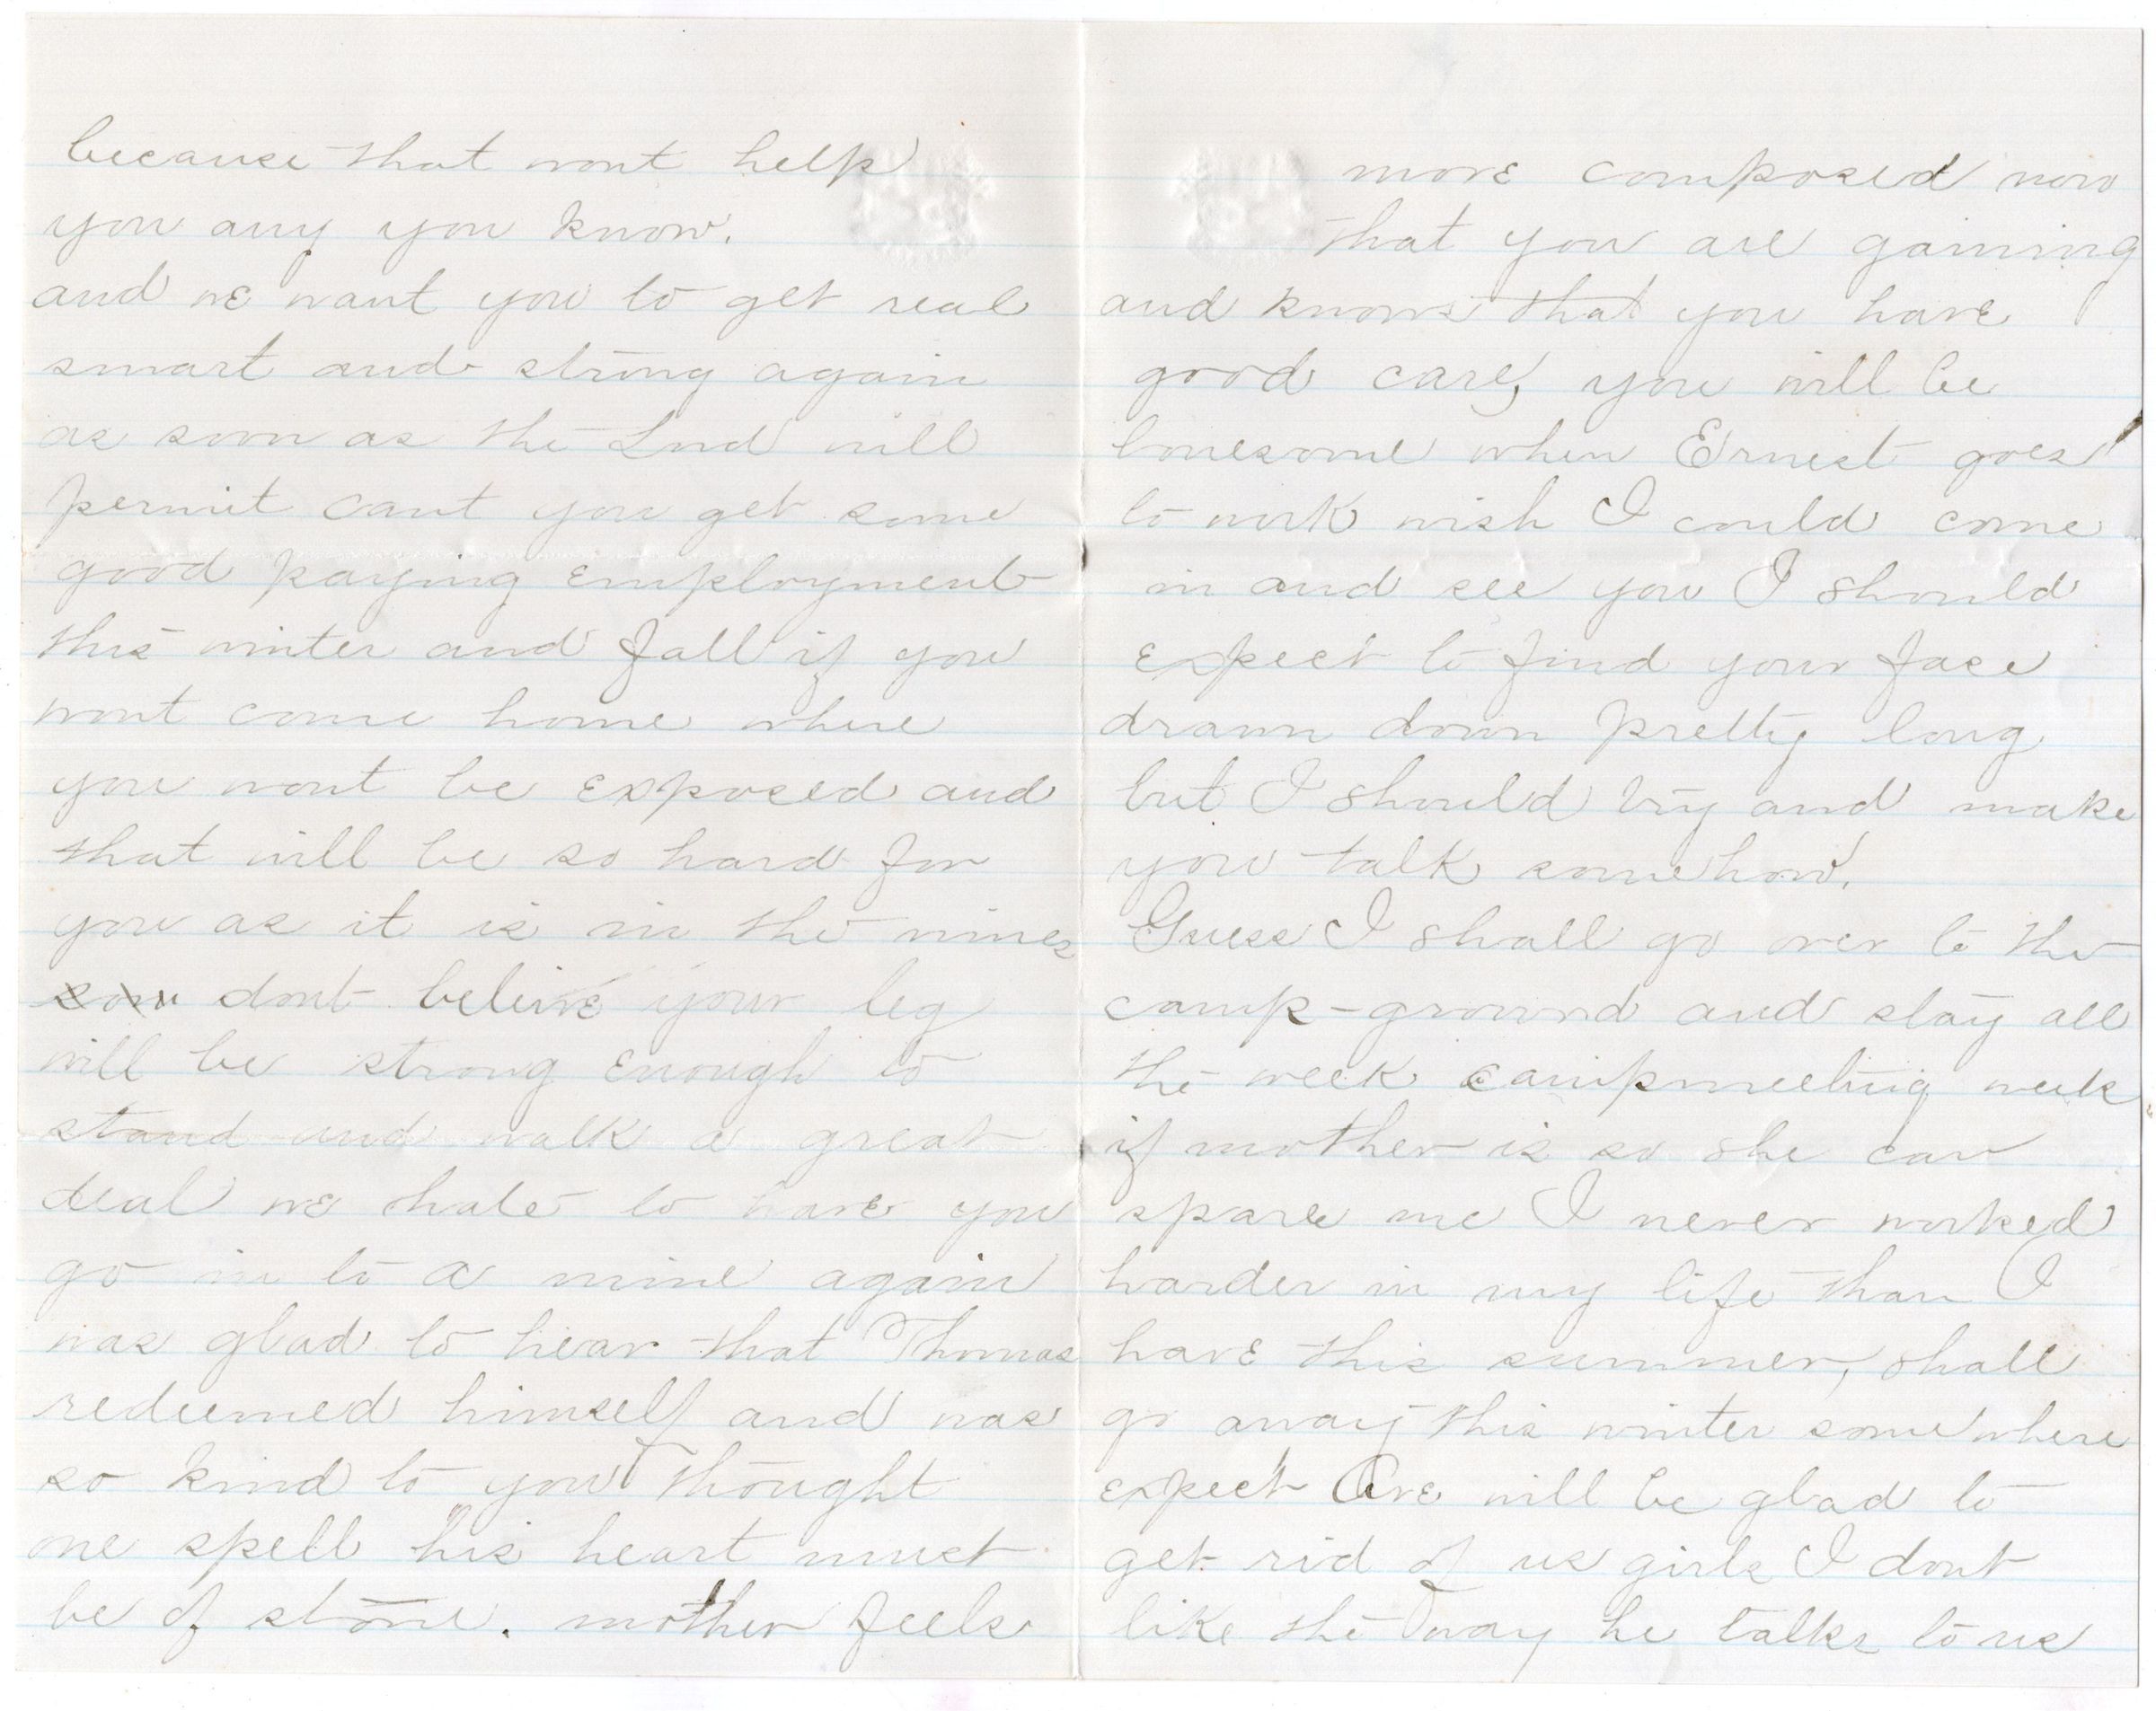 because that wont help
you any you know.
and we want you to get real
smart and strong again
as soon as the Lord will
permit cant you get some
good paying employment
this winter and fall if you
wont come home where
you wont be exposed and
that will be so hard for
you as it is in the mines
dont beleive your leg
will be strong enough to
stand and walk a great
deal we hate to have you
go in to a mine again
was glad to hear that Thomas
redeemed himself and was
so kind to you I thought
one spell his heart must
be of stone. mother feels
more composed now
that you are gaining
and knows that you have
good care, you will be
lonesome when Ernest goes
to work wish I could come
in and see you I should
expect to find your face
drawn down pretty long
but I should try and make
you talk somehow.
Guess I shall go over to the
camp-ground and stay all
the week campmeeting week
if mother is so she can
spare me I never worked
harder in my life than I
have this summer, shall
go away this winter somewhere
expect will be glad to
get rid of us girls I dont
like the way he talks to us